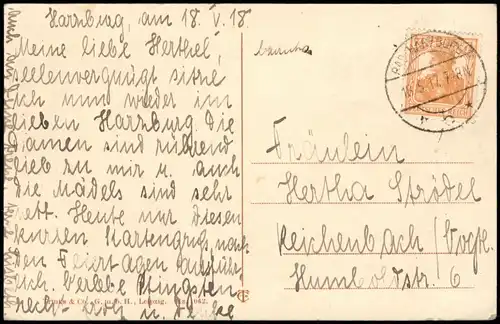 Harzburg, am 18. V. 18.
Meine liebe Herthel,
seelenvergnügt sitze
ich nun wieder im
lieben Harzburg. Die
Damen sind rührend
lieb zu mir u. auch
die Mädels sind sehr
nett. Heute nur diesen
kurzen Kartengruss, nach
den Feiertagen ausführ-
lich. Verlebe Pfingsten
recht froh u. denke
Fräulein
Hertha Strödel
Reichenbach/Vogtl.
Humboldtstr. 6
& Co., G. m. b. H., Leipzig.